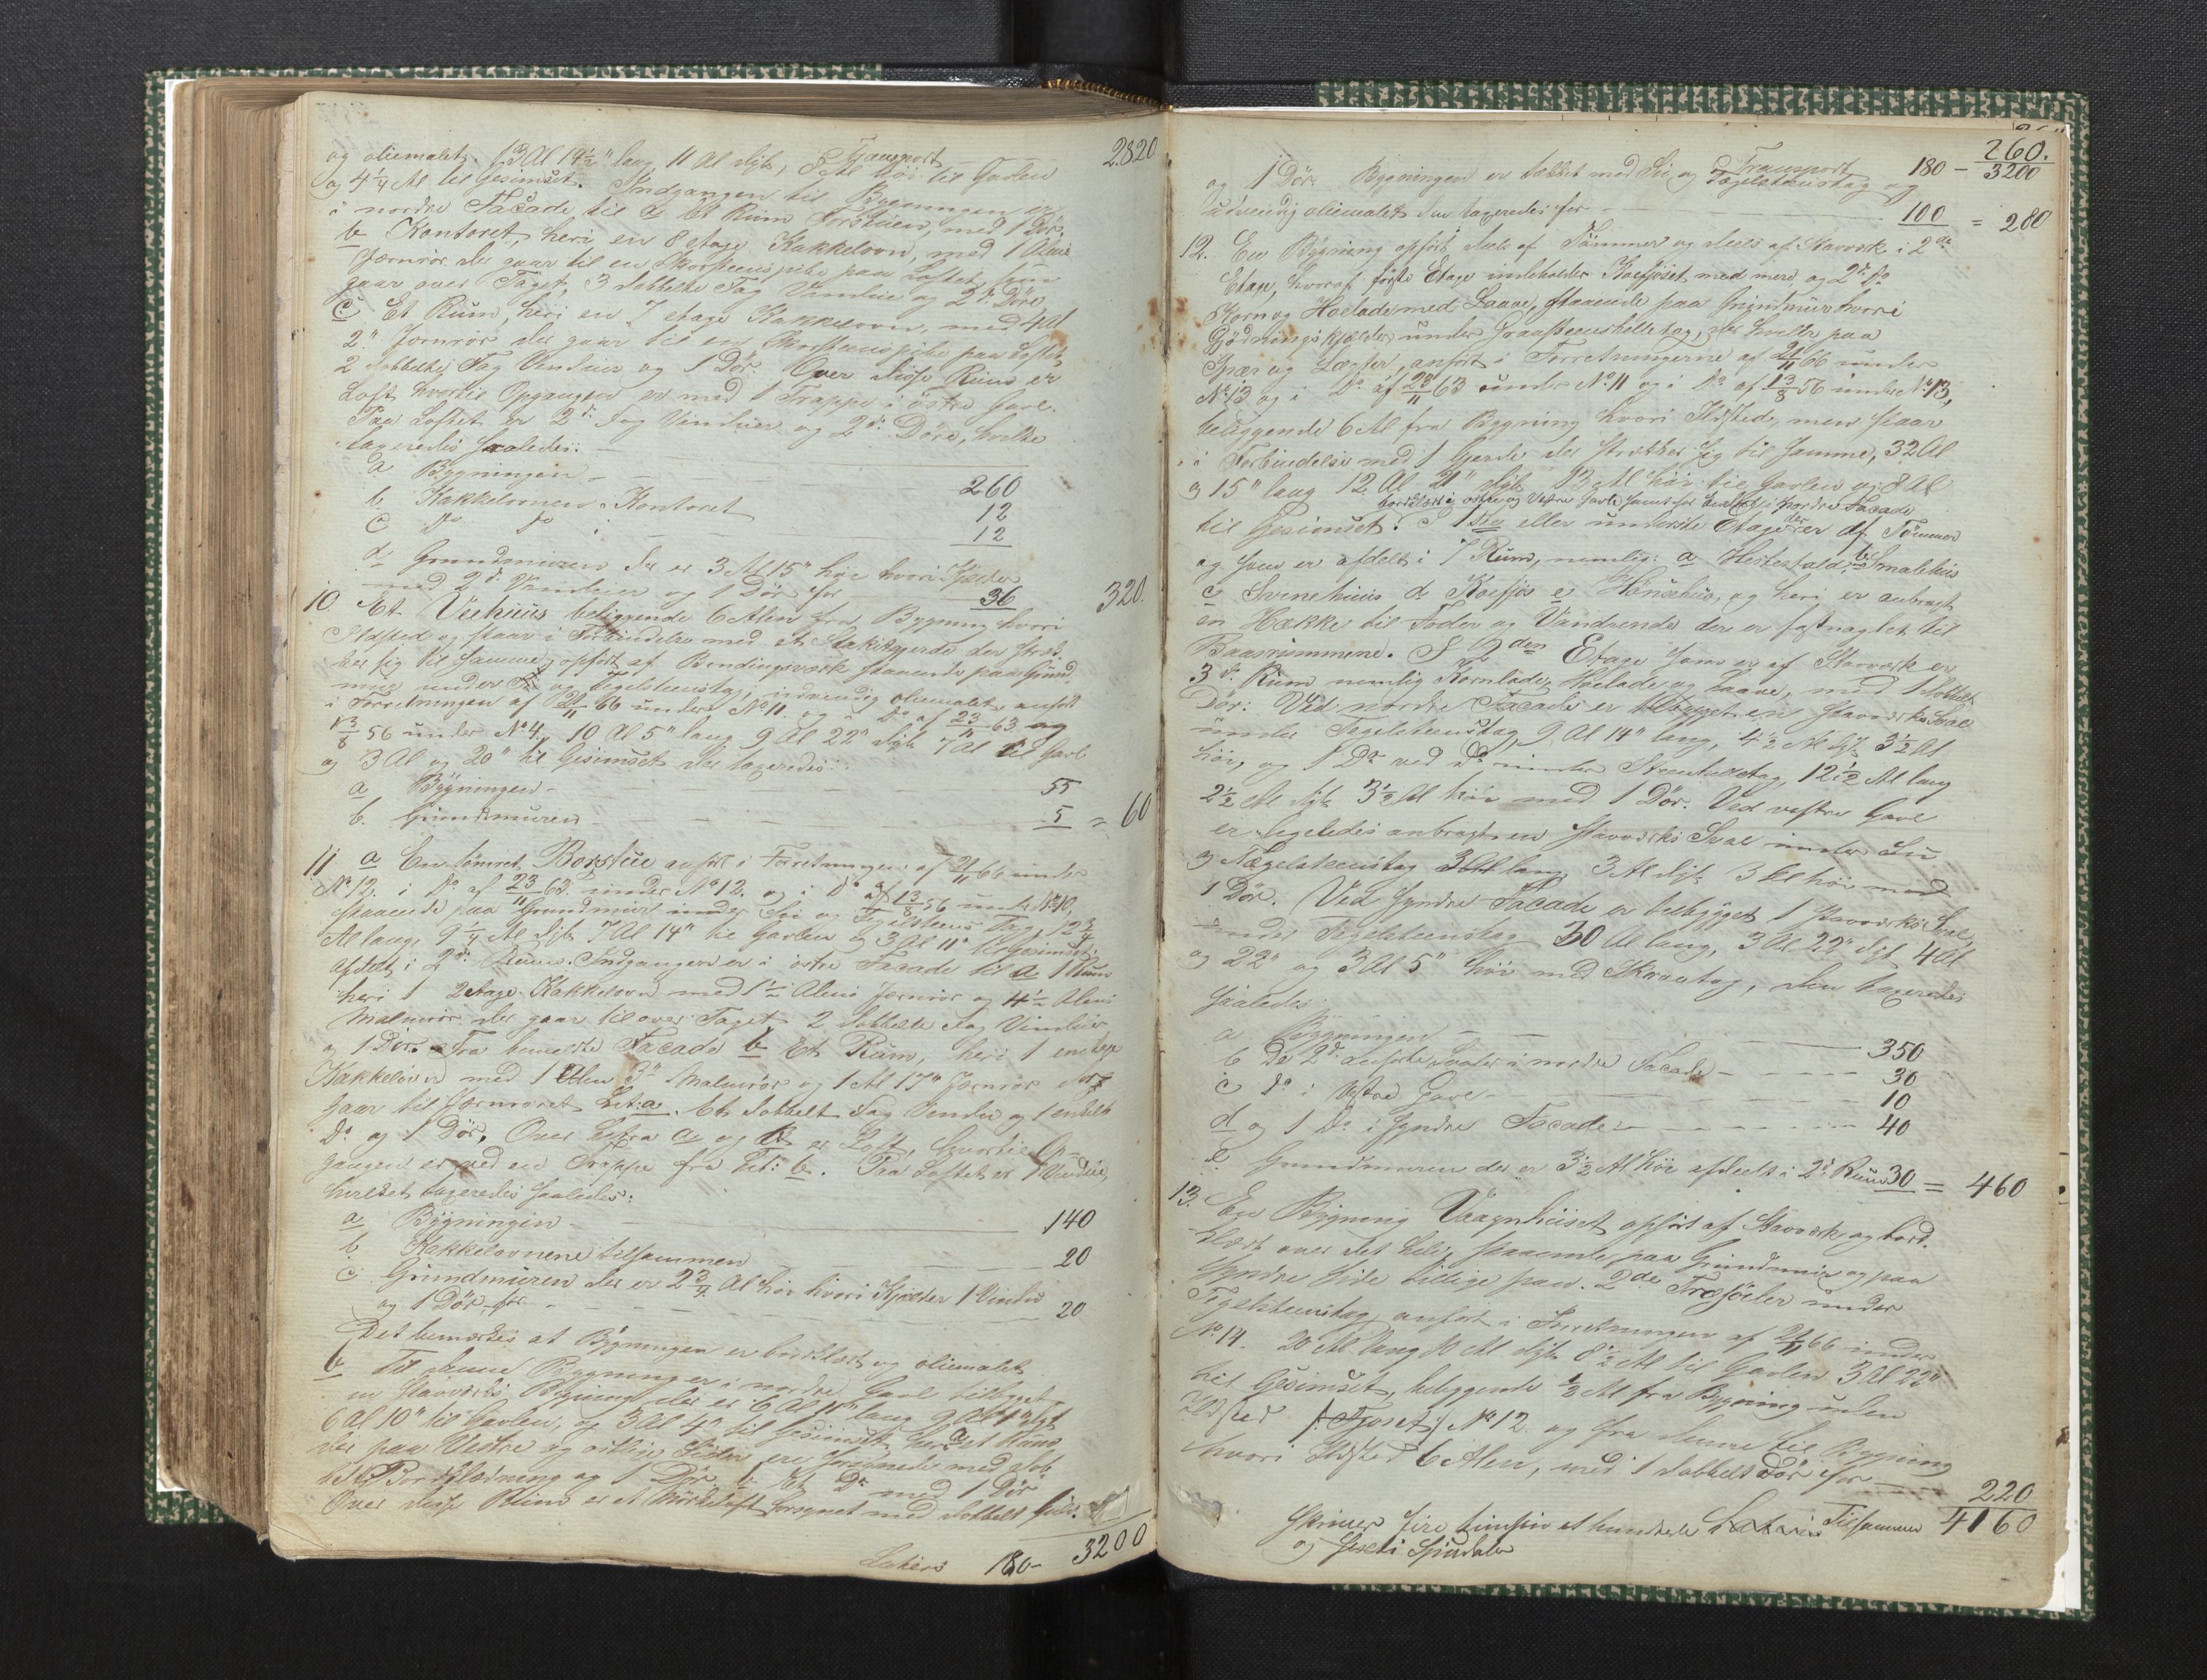 Transport 2820
og oliemalet. 13 Al 14½" lang 11 Al dyb, 8 Al høi til Gavlen
og 4¼ Al til Gesimset. Indgangen til Bygningen er
i nordre Facade til a Et Rum Forstuen, med 1 Dør.
b Kontoret, heri en 8 etage Kakkelovn, med 1 Alens
Jernrør der gaar til en Skorsteenspibe paa Loftet som
gaar over Taget, 3 dobbelte Fag Vinduer og 2de Døre
c Et Rum, heri en 7 etage Kakkelovn, med 4 Al
2" Jernrør der gaar til en Skorsteenspibe paa Loftet,
2 dobbelte Fag Vinduer og 1 Dør. Over disse Rum er
Loft hvortil Opgangen er med 1 Trappe i østre Gavl.
Paa Loftet er 2de Fag Vinduer og 2de Døre, hvilke
taxeredes saaledes:
a Bygningen - 260
b. Kakkelovnen i Kontoret 12
c Do Do i 12
d Grundmuren der er 3 Al 15" høi hvori Kjælder
med 2de Vinduer og 1 Dør for 36 320.
10 Et Veehuus beliggende 6 Alen fra Bygning hvori
Ildsted og staar i Forbindelse med et Stakitgjerde der stræk-
ker sig til samme, opført af Bindingsværk staaende paa Grund-
muur under Tegelsteenstag, udvendig oliemalet, anført
i Forretningen af 21/11 66 under No 11. og i Do af 23/11 63 og
13/8 56 under No 4. 10 Al 5" lang 9 Al 22" dyb 7 Al til Gavl
og 3 Al og 20" til Gesimset der taxeredes:
a Bygningen - 55
b. Grundmuren - 5 = 60
11 a En tømret Borstue anført i Forretningen af 21/11 66 under
No 12. i Do af 23/11 63 under No 12. og i Do af 13/8 56 under No 10,
staaende paa Grundmuur under Su og Tegelsteens Tag, 12¾
Al lang, 9¼ Al dyb 7 Al 14" til Gavlen og 3 Al 11" til Gesimset,
afdelt i 2de Rum. Indgangen er i østre Facade til a 1 Rum
heri 1 2etage Kakkelovn med 1½ Alens Jernrør og 4½ Alens
Malmrør der gaar til over Taget, 2 dobbelte Fag Vinduer
og 1 Dør. Fra bemeldte Facade b Et Rum, heri 1 enetage
Kakkelovn med 1 Alen 3" Malmrør og 1 Al 17" Jernrør der
gaar til Jernrøret Lit: a. Et dobbelt Fag Vindu og 1 enkelt
Do og 1 Dør. Over Litra a og b er Loft, hvortil Op-
gangen er ved en Trappe fra Lit: b. Paa Loftet er 1 Vindue,
hvilket taxeredes saaledes:
a Bygningen - 140
b. Kakkelovnene tilsammen 20
c Grundmuren der er 2¾ Al høi hvori Kjælder 1 Vindu
og 1 Dør for - 20
Det bemærkes at Bygningen er bordklædt og oliemalet
b Til denne Bygning er i nordre Gavl tilbygget
en Stavværks Bygning der er 6 Al lang 9 Al dyb
6 Al 10" til Gavlen, og 3 Al 4" til Gesimset, heri a et Rum
der paa Vestre og østlige Sider er forsynede med dob-
belt Bordklædning og 1 Dør. b Et Do med 1 Dør
Over disse Rum er et Mørkeloft forsynet med dobbelt Gulv.
Lateris 180- 3200
260.
Transport 180 - 3200
og 1 Dør. Bygningen er tækket med Su og Tægelsteenstag og
udvendig oliemalet den taxeredes for - 100 = 280
12. En Bygning opført deels af Tømmer og deels af Stavværk i 2de
Etage, hvoraf første Etage indeholder Koefjøset med mere og 2den Do
Korn og Hoelade med Laave, staaende paa Grundmuur hvori
Gjødningskjælder under Graasteenshelletag, der hviler paa
Spær og Lægter, anført i Forretningerne af 21/11 66 under
No 13 og i Do af 23/11 63 under No 11 og i Do af 13/8 56 under No 13,
beliggende 6 Al fra Bygning hvori Ildsted, men staar
i Forbindelse med 1 Gjerde der strækker sig til samme, 32 Al
og 15" lang 12 Al 21" dyb 13 Al høi til Gavlen og 8 Al
bordklædt i østre og Vestre Gavle samt for Endel i Nordre Facade
til Gesimset. I 1ste eller underste Etage der er af Tømmer
og som er afdelt i 7 Rum, nemlig: a Hestestald, b Smalehus
c Svinehuus d Koefjøs e Hønsehus, og heri er anbragt
en Hække til Foder og Vandrende der er fastnaglet til
Baasrummene. I 2den Etage som er af Stavværk er
3de Rum nemlig Kornlade, Hoelade og Laave, med 1 dobbelt
Dør: Ved nordre Facade er tilbygget en Stavværks Sval
under Tegelsteenstag 9 Al 14" lang, 4½ Al dyb 3½ Al
høi, og 1 Do ved Do under Steenhelletag, 12½ Al lang
2½ Al dyb 3½ Al høi med 1 Dør. Ved vestre Gavl
er ligeledes anbragt en Stavværks Sval under Su
og Tægelsteenstag 3 Al lang 3 Al dyb 3 Al høi med
1 Dør. Ved syndre Facade er tilbygget 1 Stavværks Sval
under Tegelsteenstag 30 Al lang, 3 Al 22" dyb 4 Al
og 22" og 3 Al 5" høi med Skraatag, den taxeredes
saaledes:
a Bygningen - 350
b De 2de anførte Svaler i nordre Facade - 30
c Do i Vestre Gavl - 10
d og 1 Do i syndre Facade - 40
e Grundmuren der er 3½ Al høi afdeelt i 2de Rum 30 = 460
13. En Bygning Vaagnhuset opført af Stavværk og bord-
klædt over det hele, staaende paa Grundmuur og paa
syndre Side tillige paa 2de Træsøiler under
Tegelsteenstag anført i Forretningen af 21/11 66 under
No 14. 20 Al lang 10 Al dyb 8½ Al til Gavlen 3 Al 22"
til Gesimset, beliggende ½ Al fra Bygning uden
Ildsted /: Fjøset :/ No 12 og fra denne til Bygning
hvori Ildsted 6 Alen, med 1 dobbelt Dør for - 220
Skriver fire tusind et hundrede Tilsammen 4160
og Sexti Spesidaler